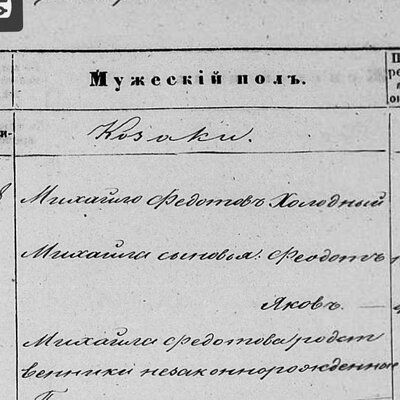 Мужескій полъ.
Козаки.
Михайло Федотовъ Холодный
Михайла сыновья: Феодотъ
Яковъ.
Михайла Федотова родст
венники незаконнорожденные